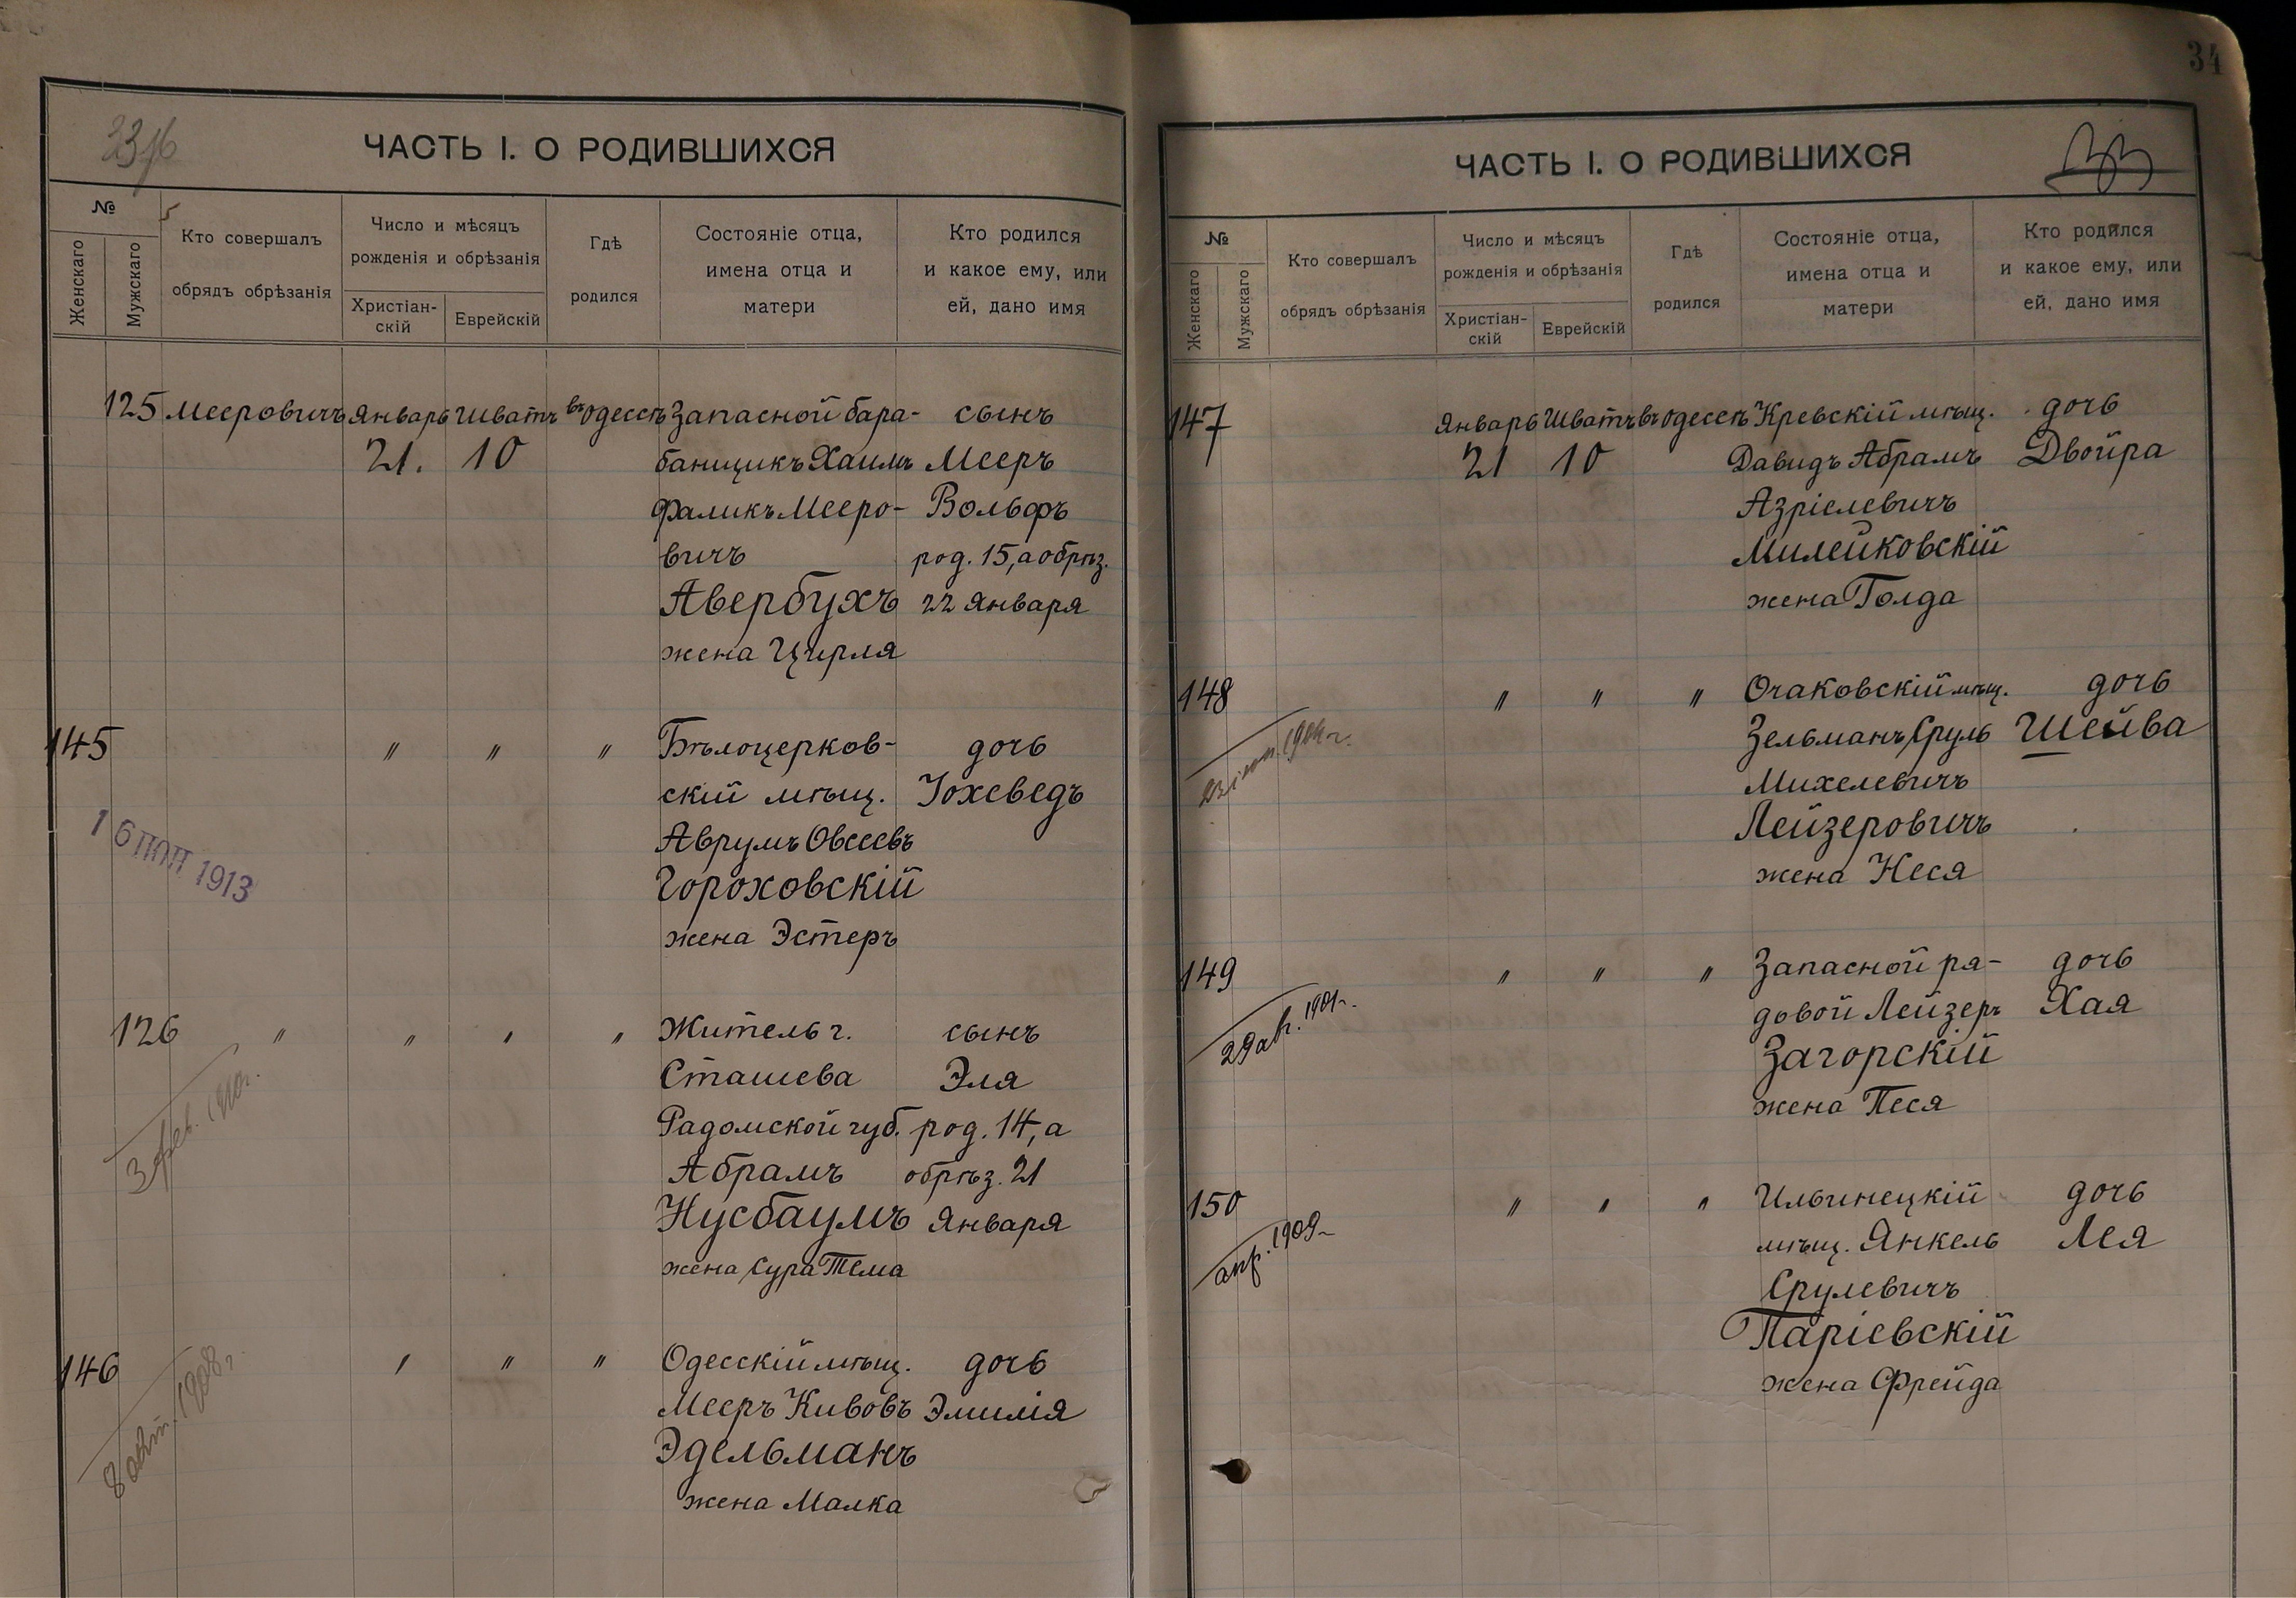 ЧАСТЬ I. О РОДИВШИХСЯ
№
Женскаго
Мужскаго
Кто совершалъ
обрядъ обрѣзанія
Число и мѣсяцъ
рожденія и обрѣзанія
Христіан-
скій
Еврейскій
Гдѣ
родился
Состояніе отца,
имена отца и
матери
Кто родился
и какое ему, или
ей, дано имя
125 Мееровичъ Январь Шватъ въ Одессѣ Запасной бара- сынъ
21. 10 банщикъ Хаимъ Мееръ
Фаликъ Мееро- Вольфъ
вичъ род. 15, а обрѣз.
Авербухъ 22 Января
жена Цирля
145 " " " Бѣлоцерков- дочь
скій мѣщ. Іохеведъ
Аврумъ Овсеевъ
Гороховскій
жена Эстеръ
1913
126 " " " " Житель г. сынъ
Сташева Эля
Радомской губ. род. 14, а
Абрамъ обрѣз. 21
Нусбаумъ Января
жена Сура Тема
3 фев. 1910г.
146 " " " Одесскій мѣщ. дочь
Мееръ Кивовъ Эмилія
Эдельманъ
жена Малка
1908г.
34
ЧАСТЬ I. О РОДИВШИХСЯ
33
№
Женскаго
Мужскаго
Кто совершалъ
обрядъ обрѣзанія
Число и мѣсяцъ
рожденія и обрѣзанія
Христіан-
скій
Еврейскій
Гдѣ
родился
Состояніе отца,
имена отца и
матери
Кто родился
и какое ему, или
ей, дано имя
147 Январь Шватъ въ Одессѣ Кревскій мѣщ. дочь
21 10 Давидъ Абрамъ Двойра
Азріелевичъ
Милейковскій
жена Голда
148 " " " Очаковскій мѣщ. дочь
Зельманъ Сруль Шейва
Михелевичъ
Лейзеровичъ
жена Неся
149 " " " Запасной ря- дочь
довой Лейзеръ Хая
Загорскій
жена Песя
29 ав.
150 " " " Ильинецкій дочь
мѣщ. Янкель Лея
Срулевичъ
Паріевскій
жена Фрейда
апр. 1909